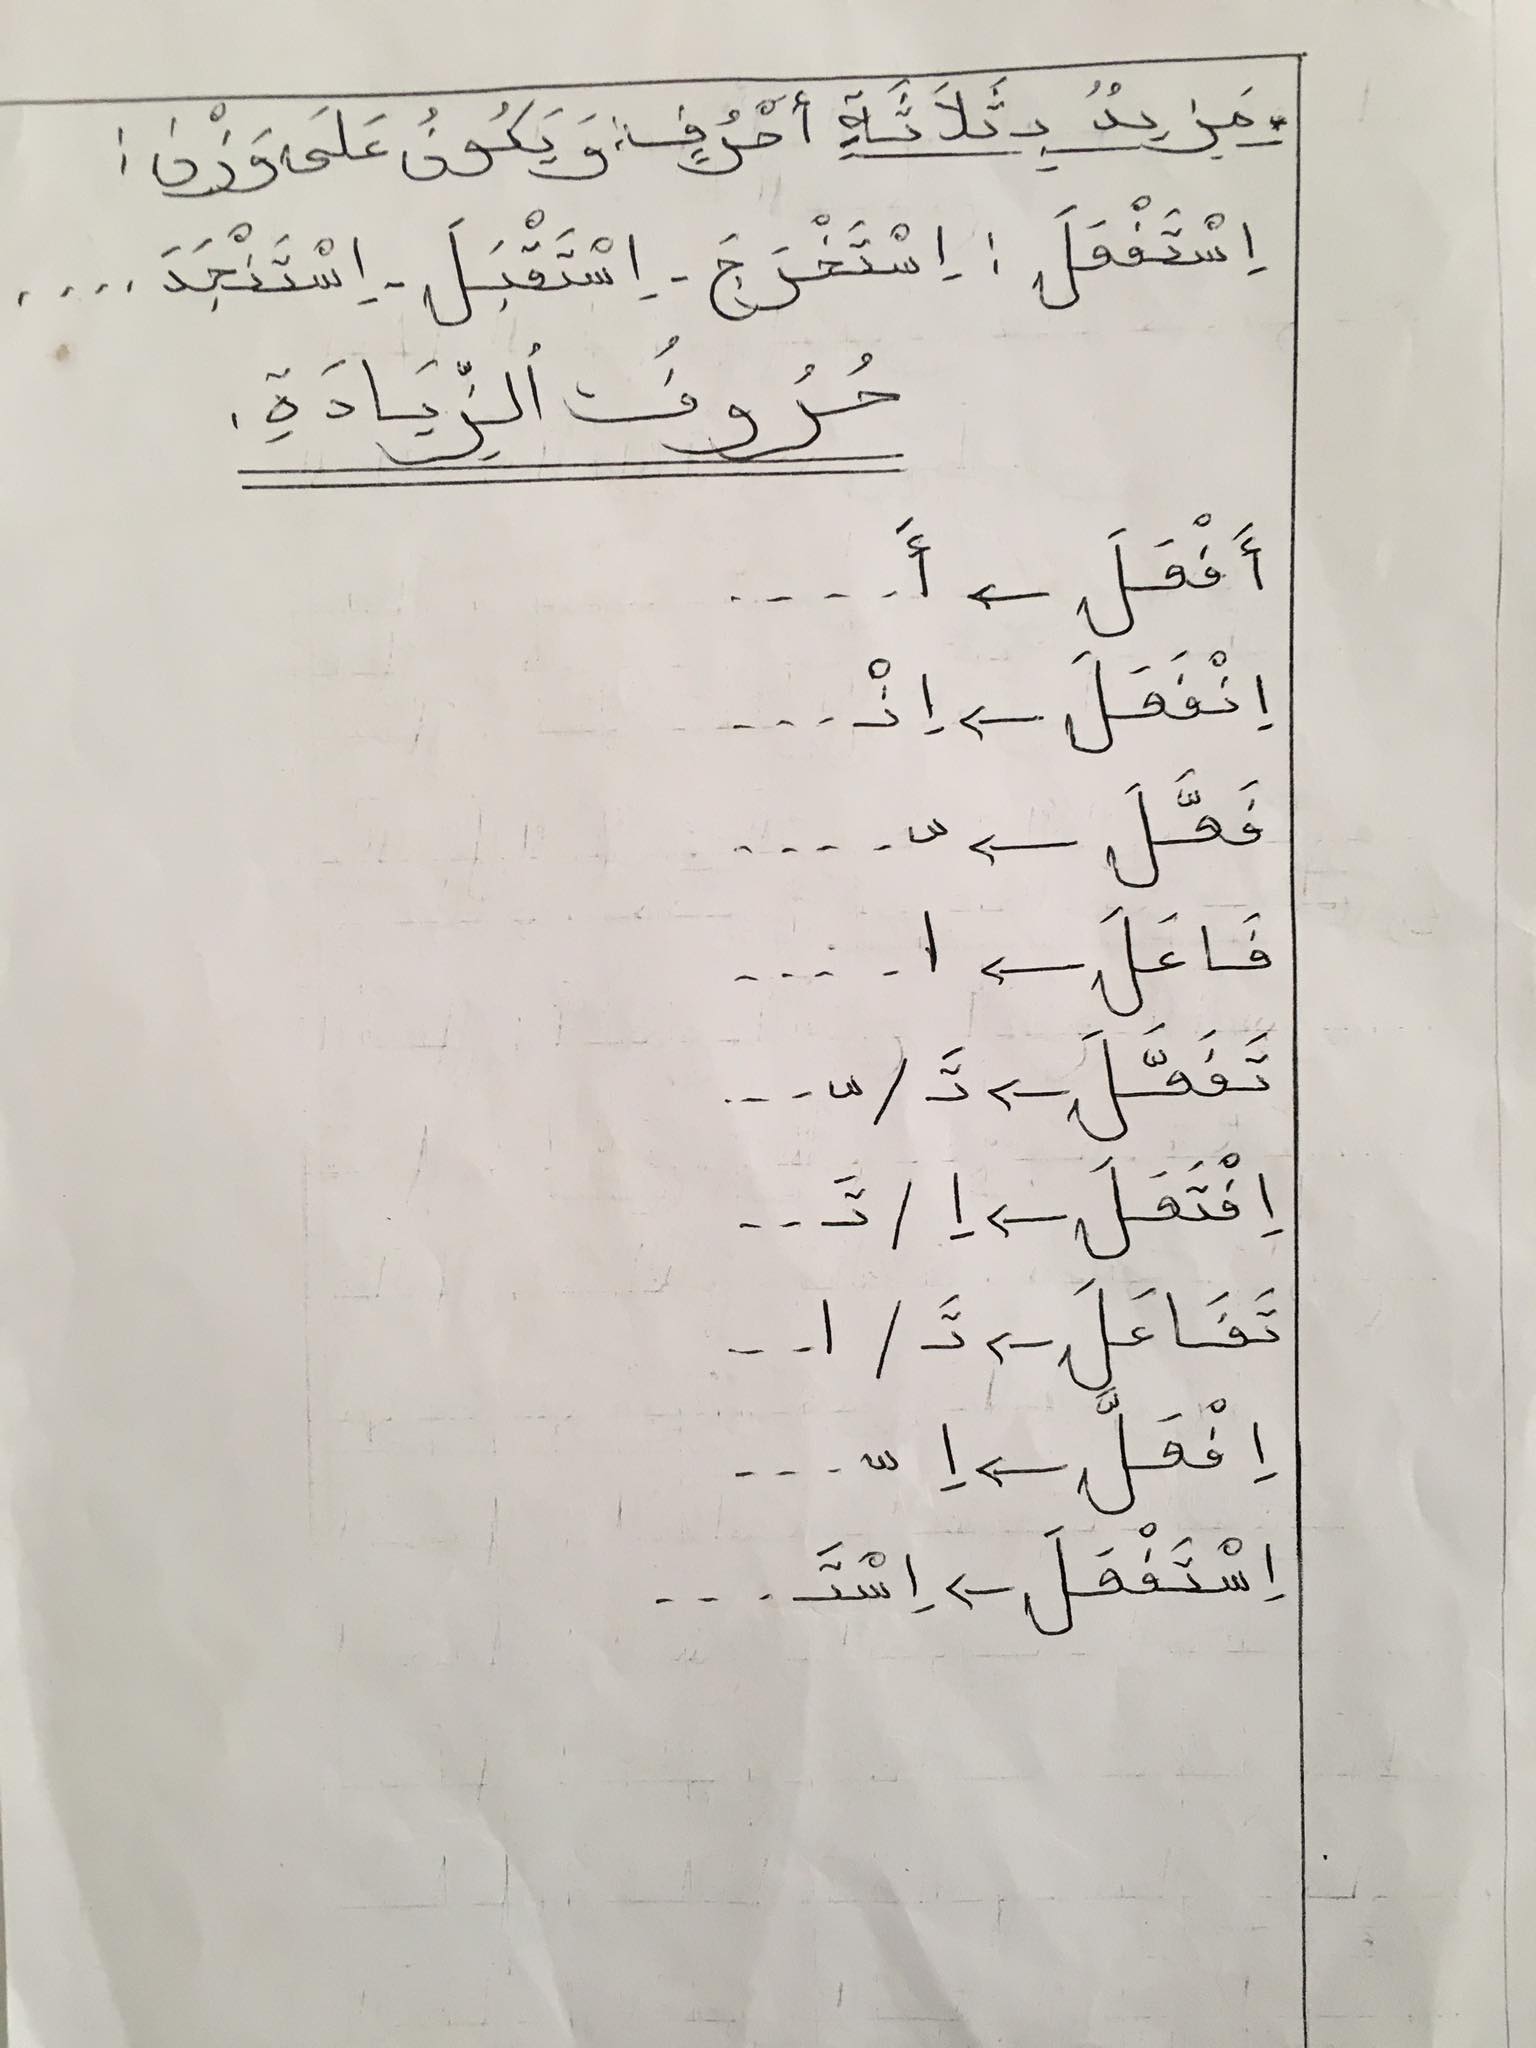 * مَزِيدُُ بِثَلاَثَةِ أَحْرُفٍ: وَيَكُونُ عَلَى وَزْنِ:
اِسْتَفْعَلَ: اِسْتَخْرَجَ - اِسْتَقْبَلَ - اِسْتَنْجَدَ ....
حُرُوفُ الزِّيَادَةِ.
أَفْعَلَ ← أَ ....
اِنْفَعَلَ ← اِنْ ....
فَعَّلَ ← ّ ....
فَاعَلَ ← ا ....
تَفَعَّلَ ← تَ / ّ ...
اِفْتَعَلَ ← اِ / تَ ..
تَفَاعَلَ ← تَ / ا ..
اِفْعَلَّ ← اِ ّ ....
اِسْتَفْعَلَ ← اِسْتَ ....